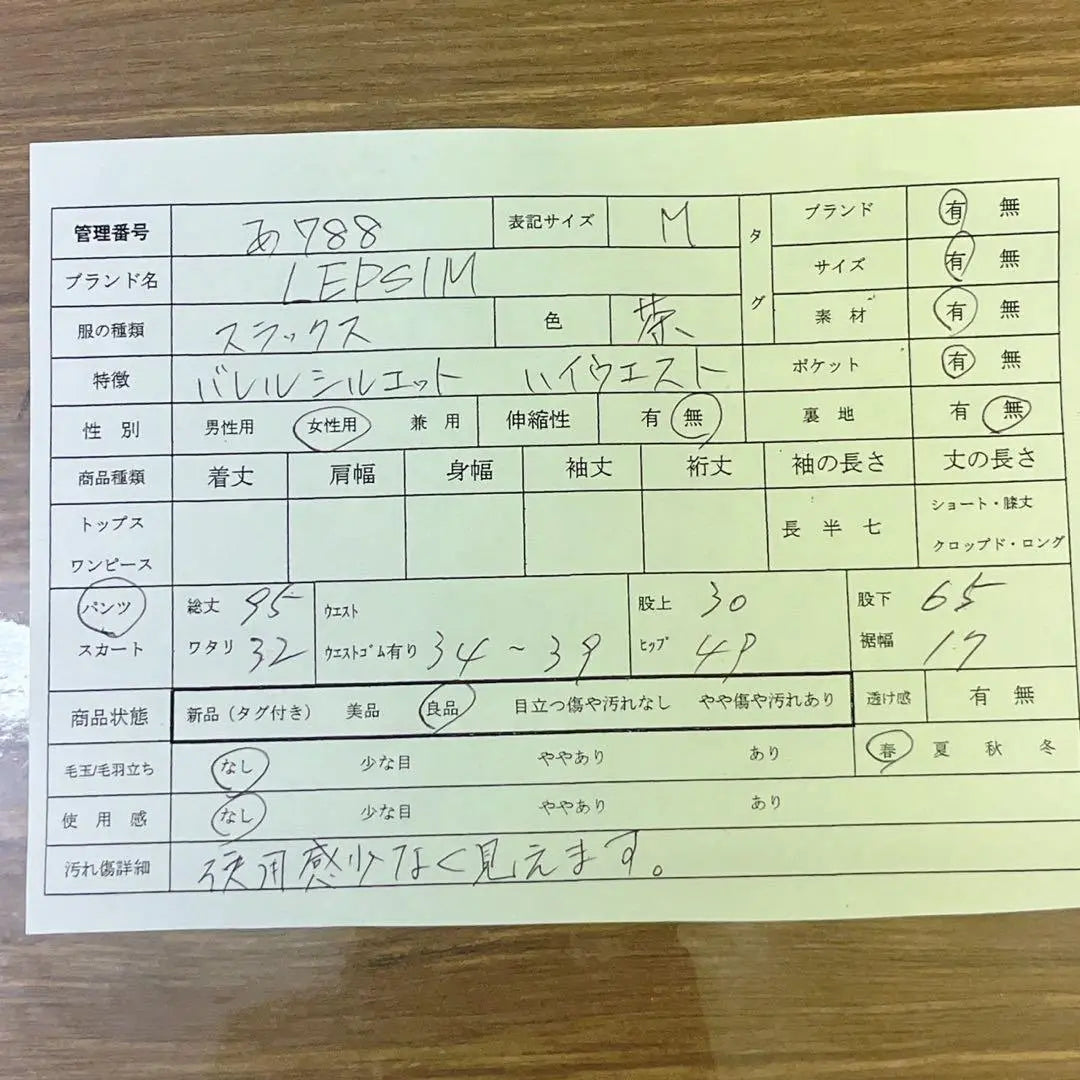 管理番号 あ788 表記サイズ M タグ ブランド 有 無
ブランド名 LEPSIM サイズ 有 無
服の種類 スラックス 色 茶 素材 有 無
特徴 バレルシルエット ハイウエスト ポケット 有 無
性別 男性用 女性用 兼用 伸縮性 有 無 裏地 有 無
商品種類 着丈 肩幅 身幅 袖丈 裄丈 袖の長さ 丈の長さ
トップス ショート・膝丈
長 半 七
ワンピース クロップド・ロング
パンツ 総丈 95 ウエスト 股上 30 股下 65
スカート ワタリ 32 ウエストゴム有り 34~39 ヒップ 49 裾幅 17
商品状態 新品(タグ付き) 美品 良品 目立つ傷や汚れなし やや傷や汚れあり 透け感 有 無
毛玉/毛羽立ち なし 少な目 ややあり あり 春 夏 秋 冬
使用感 なし 少な目 ややあり あり
汚れ傷詳細 使用感少なく見えます。